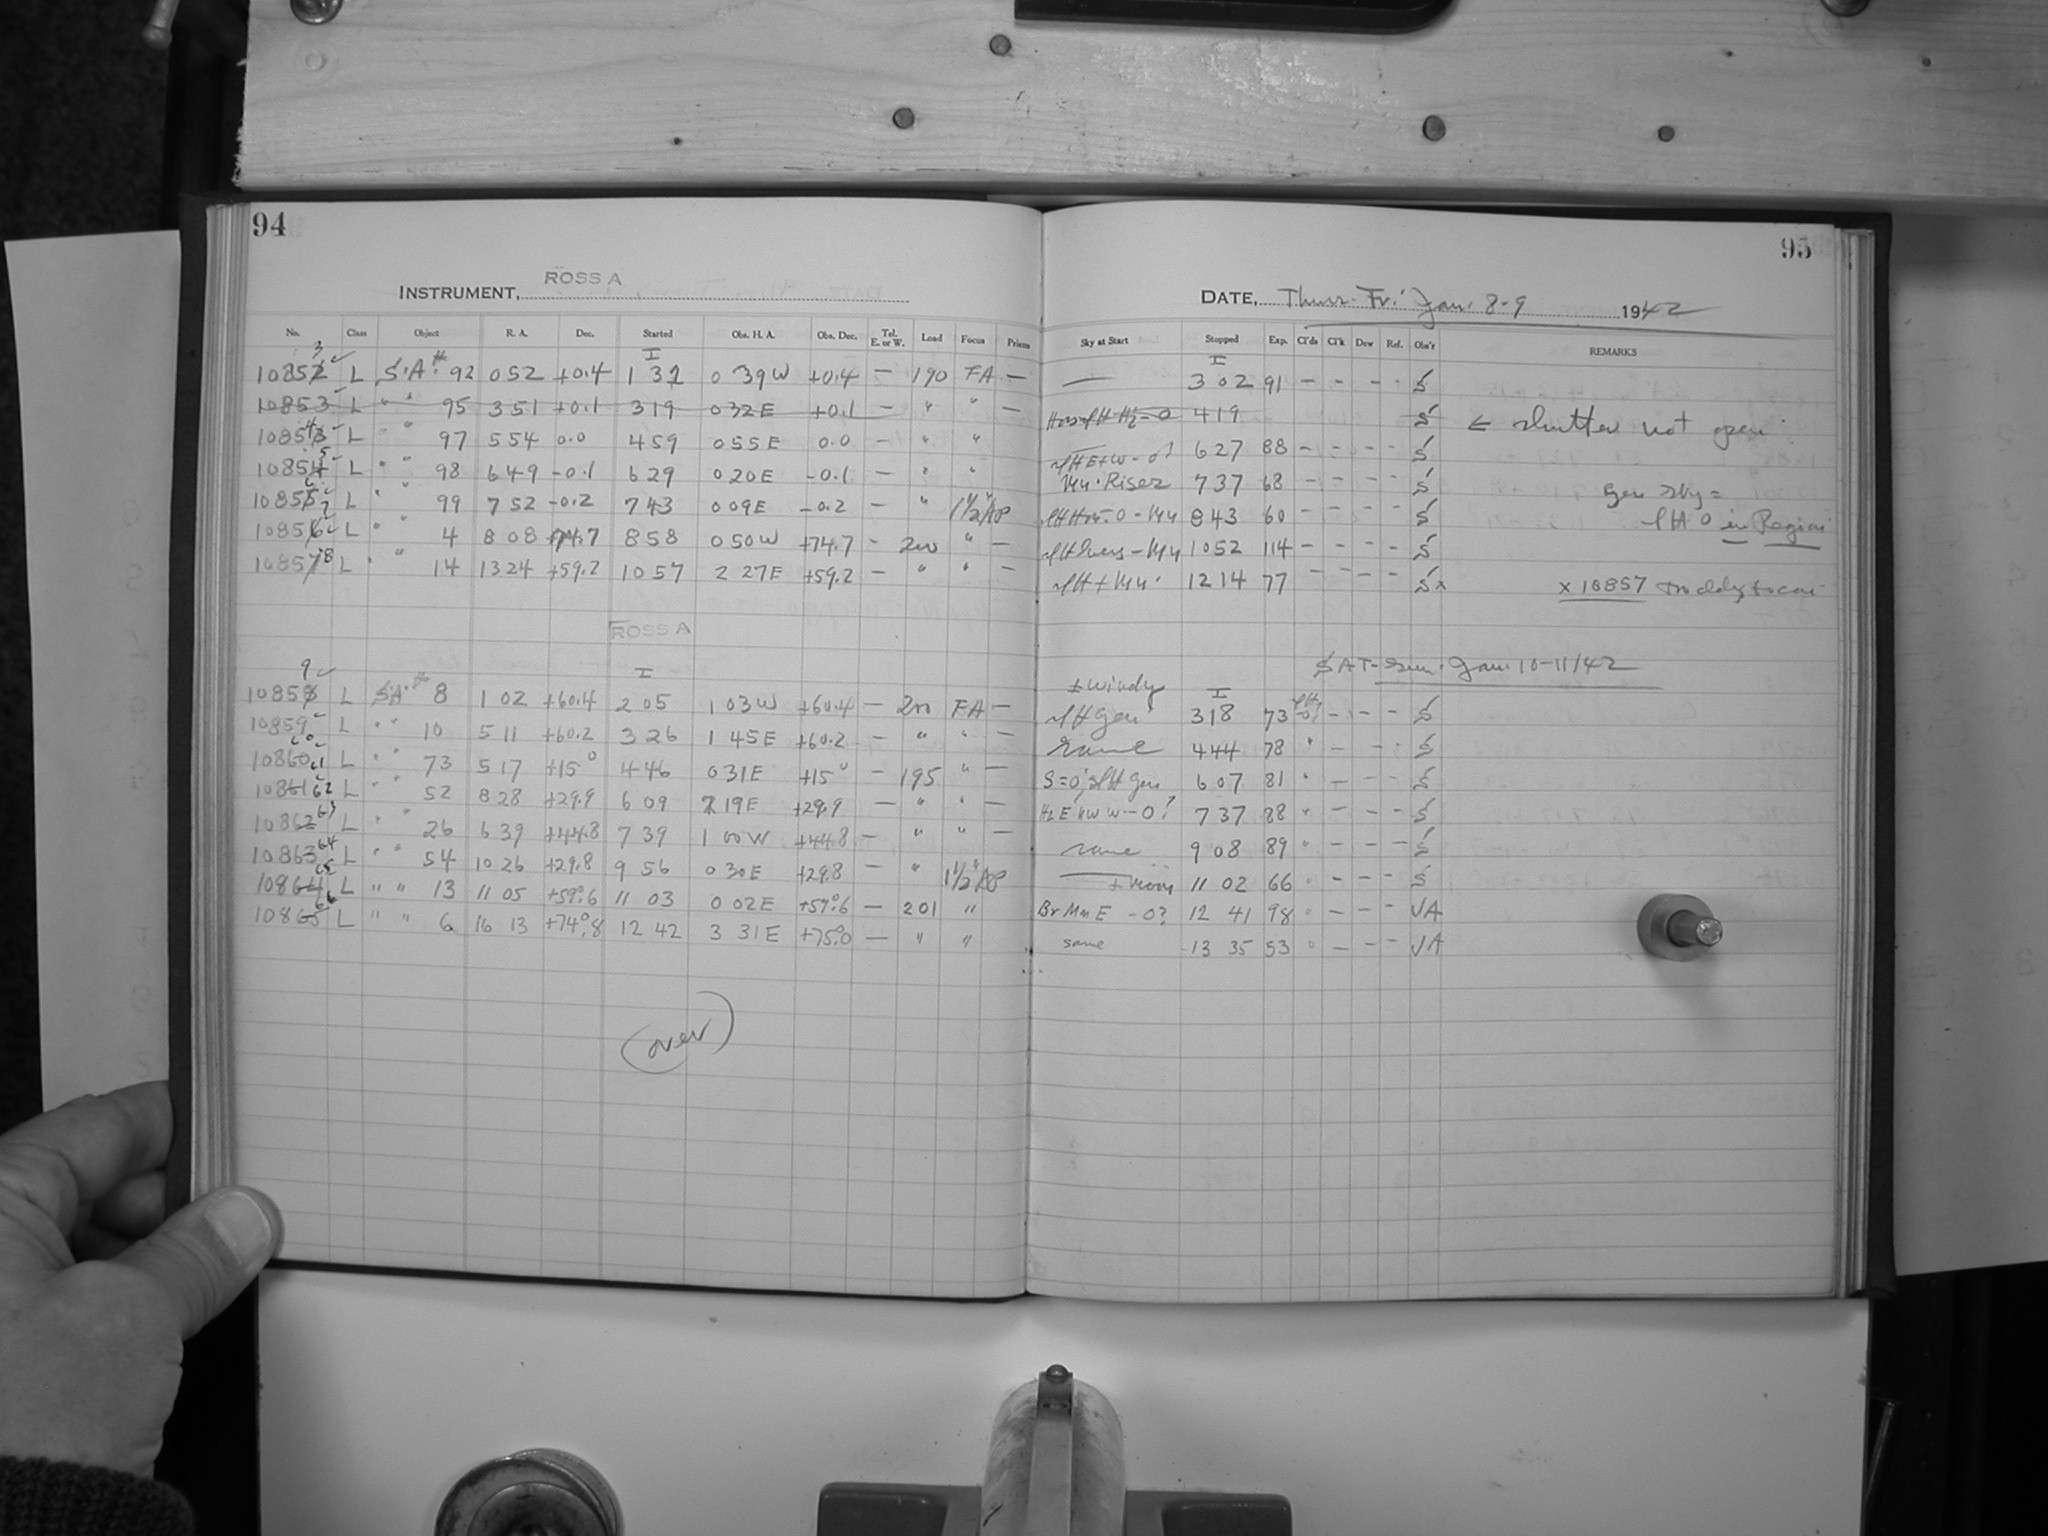 94
95
INSTRUMENT, ROSS A
DATE, Thurs-Fri Jan. 8-9 1942
No. Class Object R. A. Dec. Started Obs. H. A. Obs. Dec. Tel. E. or W. Load Focus Prisms Sky at Start Stopped Exp. Cl'ds Cl'k Dew Ref. Obs'r REMARKS
10852 3 L S.A. # 92 0 52 +0.4 1 32 0 39 W +0.4 — 190 FA — — 3 02 91 — — — - S
10853 L " " 95 3 51 +0.1 3 19 0 32 E +0.1 — " " — 4 19 S ← shutter not open
10853 4 L " " 97 5 54 0.0 4 59 0 55 E 0.0 — " " 6 27 88 — — — - S
10854 5 L " " 98 6 49 -0.1 6 29 0 20 E -0.1 — " " Mn. Riser 7 37 68 — — — - S
10855 6 L " " 99 7 52 -0.2 7 43 0 09 E -0.2 — " 1 1/2" Ap 8 43 60 — — — - S gen sky =
in Region
10856 7 L " " 4 8 08 +74.7 8 58 0 50 W +74.7 - 200 " — 10 52 114 — — — - S
10857 8 L " " 14 13 24 +59.2 10 57 2 27 E +59.2 — " " — 12 14 77 — — — - S x x 10857
ROSS A
SAT-Sun. Jan. 10-11/42
± windy
10858 9 L S.A. # 8 1 02 +60.4 2 05 1 03 W +60.4 — 200 FA — 3 18 73 — — - S
10859 60 L " " 10 5 11 +60.2 3 26 1 45 E +60.2 — " " — same 4 44 78 " — - - S
10860 61 L " " 73 5 17 +15° 4 46 0 31 E +15° — 195 " — 6 07 81 " — — - S
10861 62 L " " 52 8 28 +29.9 6 09 19 E +29.9 — " " — 7 37 88 " — — - S
10862 63 L " " 26 6 39 +44.8 7 39 1 00 W +44.8 — " " — same 9 08 89 " — — — S
10863 64 L " " 54 10 26 +29.8 9 56 0 30 E +29.8 — " 1 1/2" Ap + moon 11 02 66 " — — - S
10864 65 L " " 13 11 05 +59°.6 11 03 0 02 E +59°.6 — 201 " Br Mn E - 0? 12 41 98 " — — - VA
10865 66 L " " 6 16 13 +74°.8 12 42 3 31 E +75°.0 — " " same 13 35 53 " — — - VA
(over)